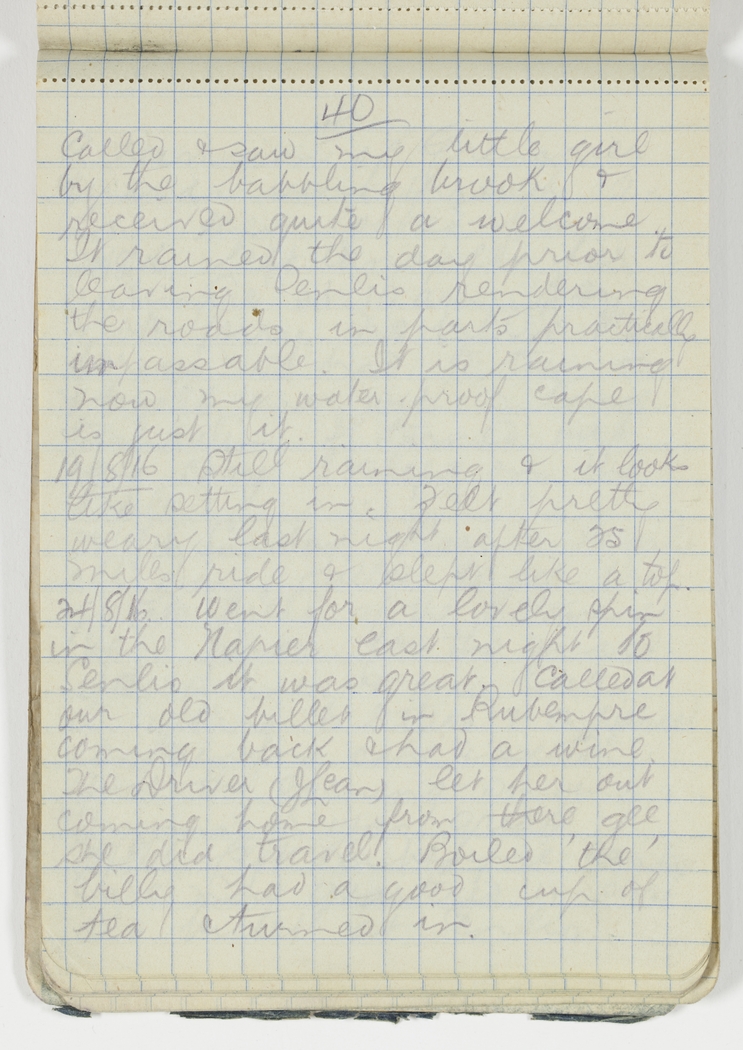 40
Called & saw my little girl
by the babbling brook &
received quite a welcome.
It rained the day prior to
leaving Senlis rendering
the roads in parts practically
impassable. It is raining
now my water proof cape
is just it.
19/8/16 Still raining & it looks
like setting in. Felt pretty
weary last night after 25
miles ride & slept like a top.
24/8/16. Went for a lovely spin
in the Napier last night to
Senlis it was great. Called at
our old billet in Rubempre
coming back & had a wine
The Driver let her out
coming home from there gee
she did travel. Boiled 'the'
billy had a good cup of
tea & turned in.